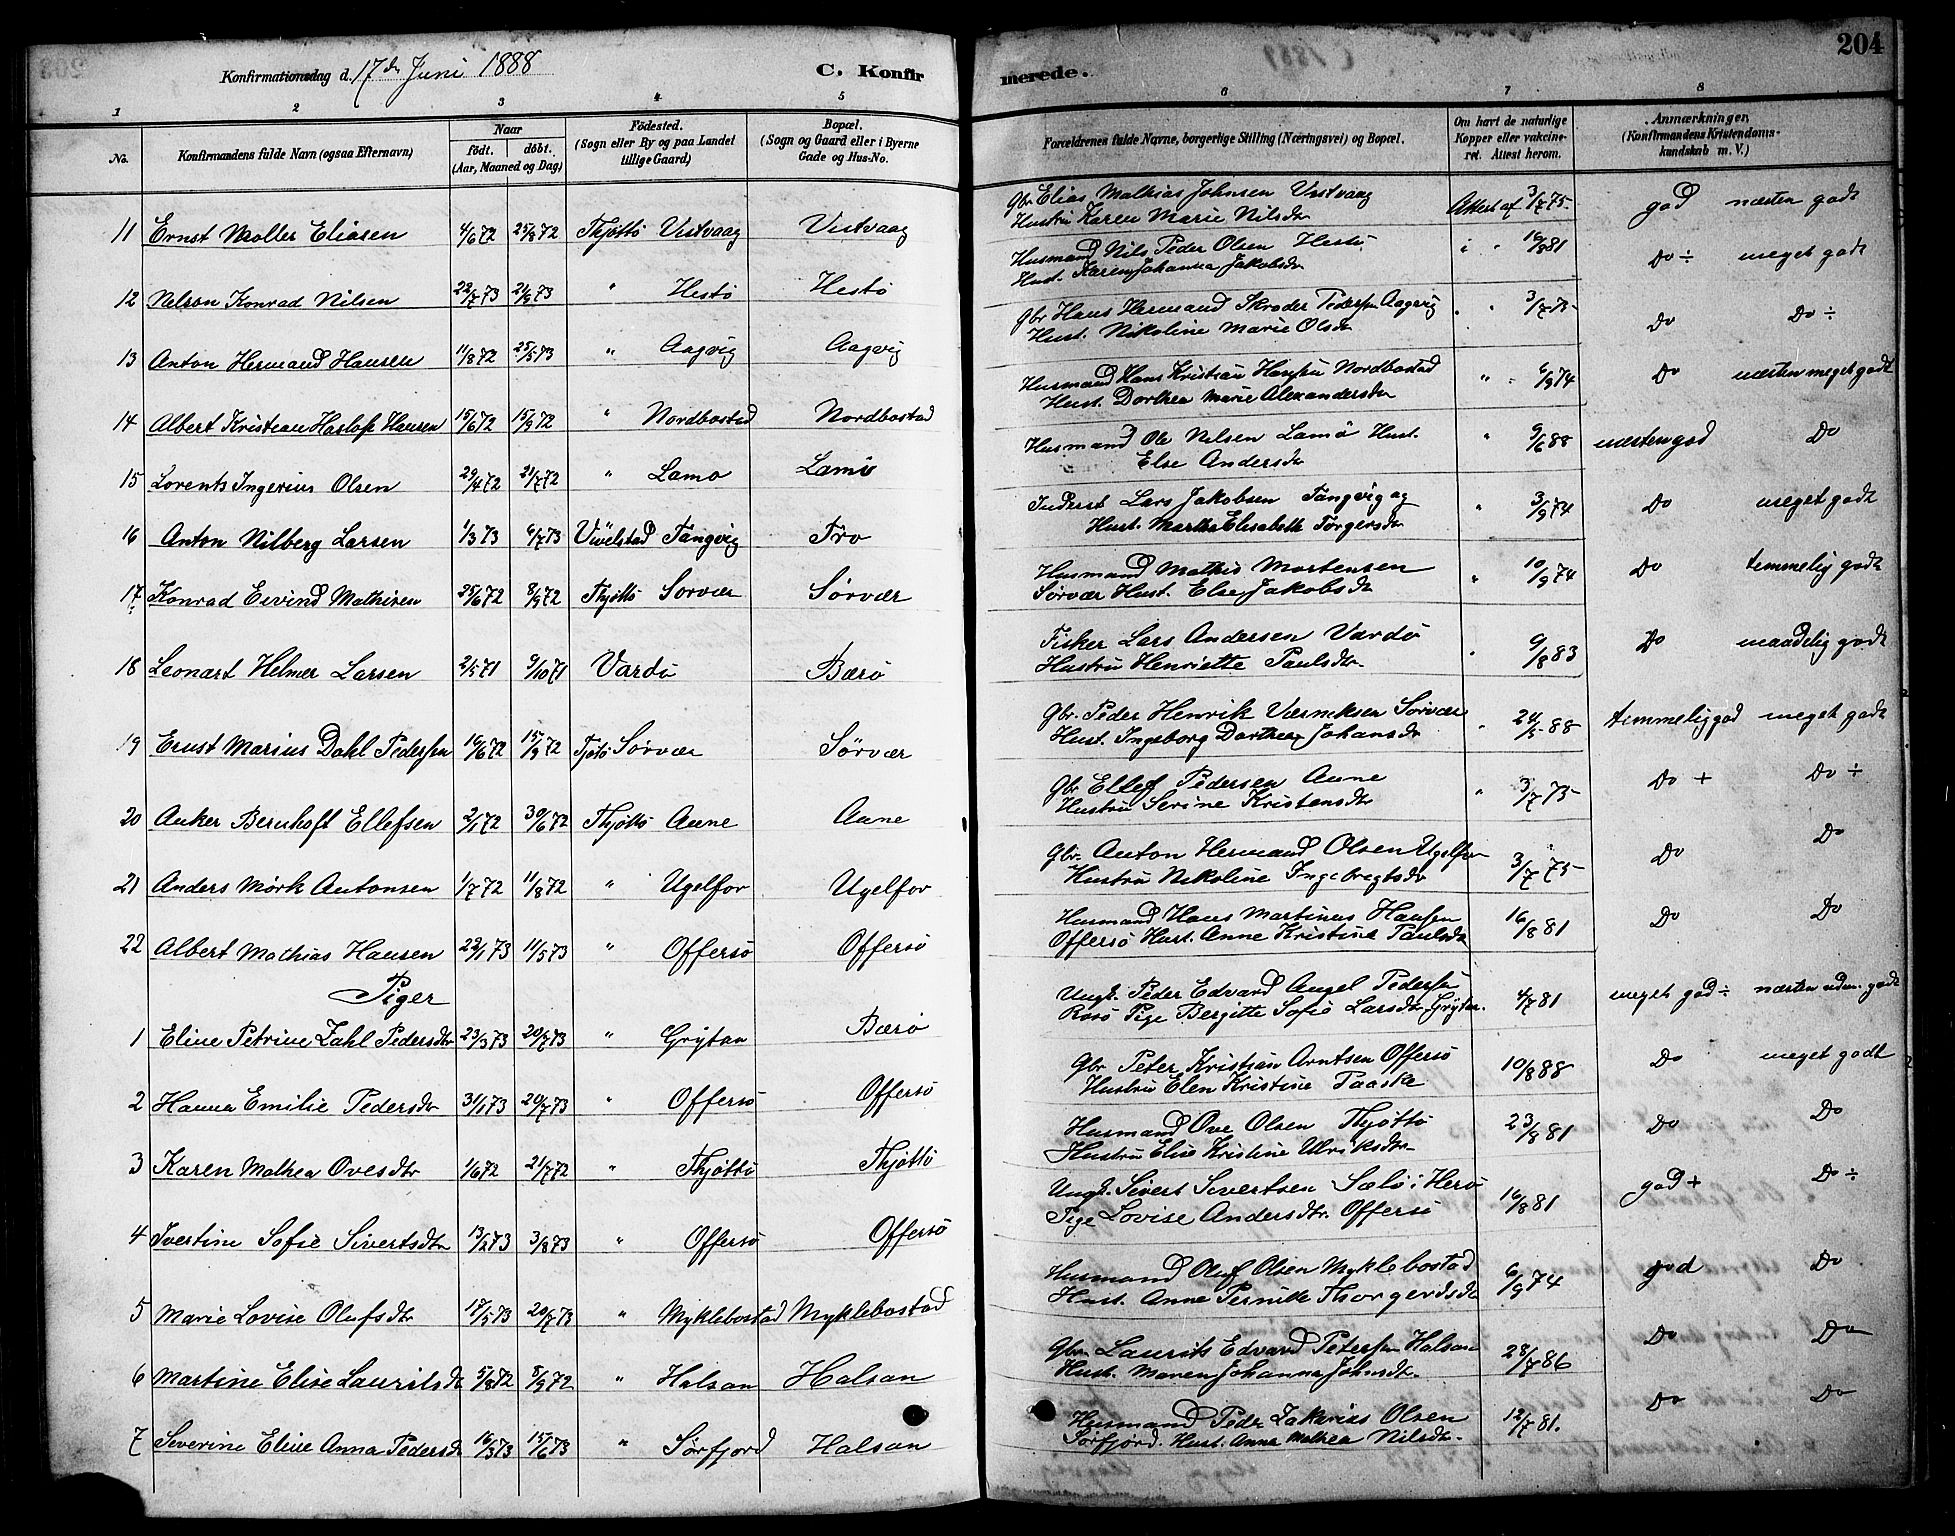 Konfirmationsdag d. 17de Juni 1888
C. Konfirmerede.
204
1 2 3 4 5 6 7 8
No.
Konfirmandens fulde Navn (ogsaa Efternavn)
Naar
födt. döbt.
(Aar, Maaned og Dag)
Födested.
(Sogn eller By og paa Landet
tillige Gaard)
Bopæl.
(Sogn og Gaard eller i Byerne
Gade og Hus-No.
Forældrenes fulde Navne, borgerlige Stilling (Næringsvei) og Bopæl.
Om havt de naturlige
Kopper eller vakcine-
ret. Attest herom.
Anmærkninger,
(Konfirmandens Kristendoms-
kundskab m. V.)
11 Ernst Møller Eliasen 4/6 72 25/8 72 Thjöttö Vistvaag Vistvaag
Gbr Elias Mathias Johnsen Vistvaag
Hustru Karen Marie Nilsdr
Attest af 3/7 75 god næsten godt
12 Nelson Konrad Nilsen 22/7 73 21/9 73 " Hestö Hestö
Husmand Nils Peder Olsen Hestö
Hust. Karen Johanna Jakobsdr
" " 16/8 81 Do ÷ meget godt
13 Anton Hermand Hansen 11/8 72 25/5 73 " Aagvig Aagvig
Gbr Hans Hermand Skroder Pedersen Aagvig
Hust. Nikoline Marie Olsdr
" " 3/7 75 Do Do ÷
14 Albert Kristian Hansen 15/6 72 15/9 72 " Nordbostad Nordbostad
Husmand Hans Kristian Hansen Nordbostad
Hust. Dorthea Marie Alexandersdr
" " 6/9 74 Do næsten meget godt
15 Lorents Ingerius Olsen 29/4 72 21/7 72 " Lamo Lamö
Husmand Ole Nilsen Lamö Hust.
Else Andersdr
" 9/6 88 næsten god Do
16 Anton Nilberg Larsen 1/3 73 6/7 73 Vivelstad Tangvig Tro
Inderst Lars Jakobsen Tangvig og
Hust. Martha Elisabeth Torgersdr
" 3/9 74 Do meget godt
17 Konrad Eivind Mathisen 25/6 72 8/9 72 Thjöttö Sorvær Sørvær
Husmand Mathis Mortensen
Sørvær Hust. Else Jakobsdr
" 10/9 74 Do temmelig godt
18 Leonart Helmer Larsen 2/5 71 9/10 71 Vardö Bærö
Fisker Lars Andersen Vardö
Hustru Henriette Paulsdtr
" 9/8 83 Do maadelig godt
19 Ernst Marius Dahl Pedersen 16/6 72 15/9 72 Tjötö Sörvær Sørvær
Gbr. Peder Henrik Sørvær
Hust. Ingeborg Dorthea Johansdr
" 24/5 88 temmelig god meget godt
20 Anker Bernhoft Ellefsen 2/1 72 30/6 72 Thjöttö Aune Aune
Gbr Ellef Pedersen Aune
Hustru Serine Kristensdtr
" 3/7 75 Do + Do ÷
21 Anders Mörk Antonsen 1/7 72 11/8 72 " Ugelfor Ugelfor
Gbr. Anton Hermand Olsen Ugelfor
Hustru Nikoline Ingebregtsdr
3/7 75 Do Do
22 Albert Mathias Hansen 22/1 73 11/5 73 " Offersö Offersö
Husmand Hans Martinus Hansen
Offersö Hust. Anne Kristine Paulsdr
16/8 81 Do Do
Piger
1 Eline Petrine Zahl Pedersdtr 23/3 73 20/7 73 " Grytan Bærö
Ungk. Peder Edvard Angel Pedersen
Rosö Pige Bergitte Sofie Larsdtr Grytan.
4/7 81 meget god ÷ næsten udm. godt
2 Hanna Emilie Pedersdr 31/1 73 20/7 73 " Offersö Offersö
Gbr Peter Kristian Arntsen Offersö
Hustru Elen Kristine Paaske
10/8 88 Do meget godt
3 Karen Mathea Ovesdtr 1/6 72 21/7 72 " Thjöttö Thjöttö
Husmand Ove Olsen Thjöttö
Hustru Elise Kristine Ulriksdtr
23/8 81 Do Do
4 Ivertine Sofie Sivertsdtr 13/2 73 3/8 73 " Offersö Offersö
Ungk. Sivert Sivertsen Sælö i Herö
Pige Lovise Andersdtr. Offersö
16/8 81 god + Do ÷
5 Marie Lovise Olufsdtr 17/5 73 20/7 73 " Myklebostad Myklebostad
Husmand Oluf Olsen Myklebostad
Hust. Anne Pernille Thorgersdr
6/9 74 god Do
6 Martine Elise Lauritsdr 5/8 72 8/9 72 " Halsan Halsan
Gbr. Laurits Edvard Petersen Halsan
Hust. Maren Johanna Johnsdtr.
28/7 86 Do Do
7 Severine Eline Anna Pedersdr 16/3 73 15/6 73 " Sörfjord Halsan
Husmand Peder Zakarias Olsen
Sörfjord. Hust. Anna Mathea Nilsdtr.
12/7 81. Do Do